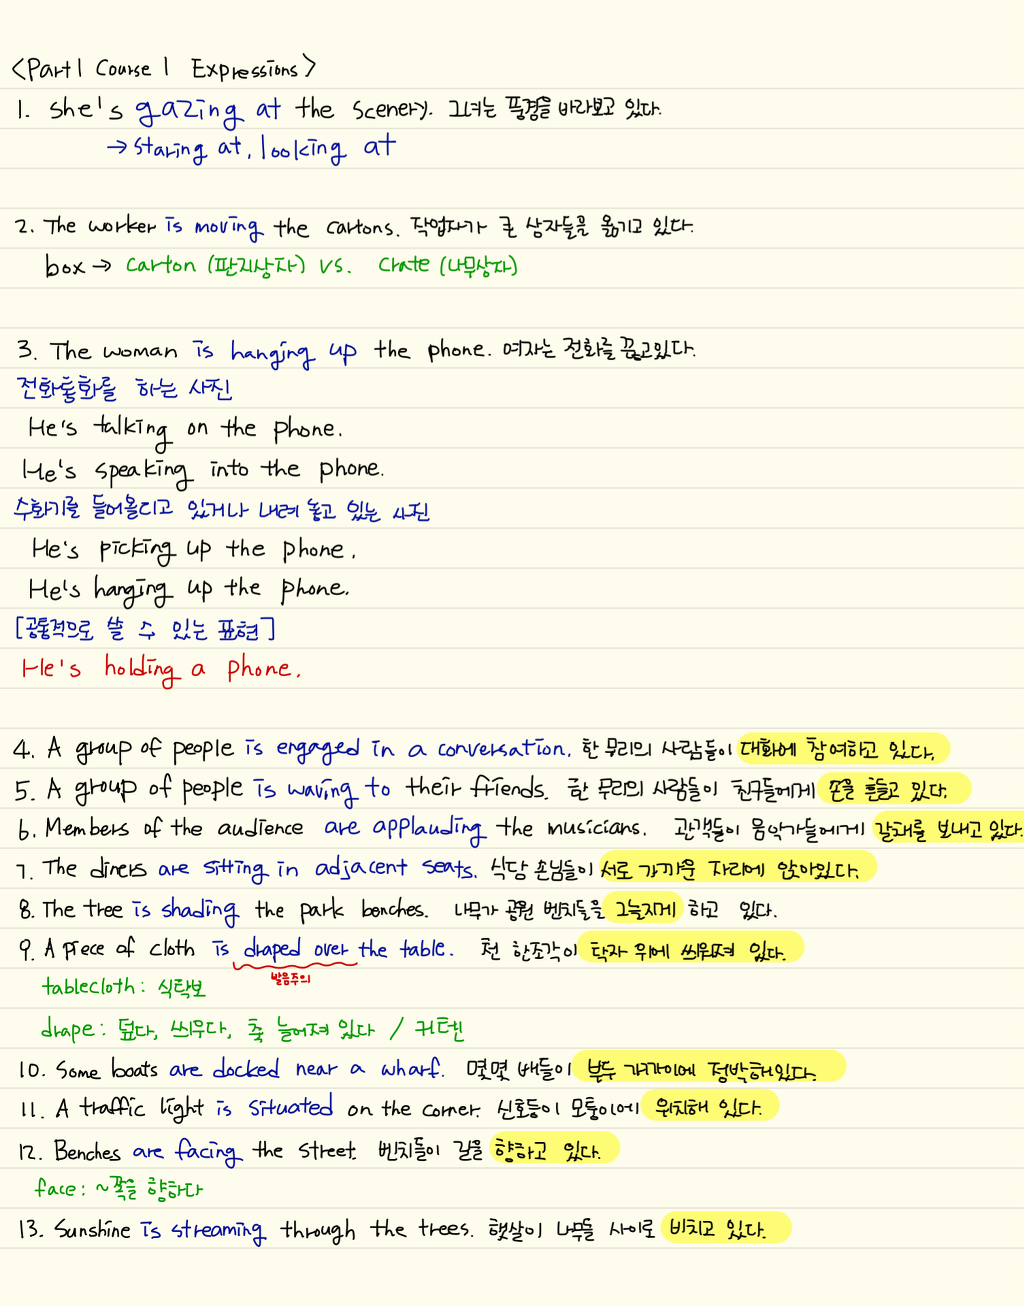 <Part1 Course 1 Expressions>
1. She's gazing at the scenery. 그녀는 풍경을 바라보고 있다.
→ staring at, looking at
2. The worker is moving the cartons. 작업자가 큰 상자들을 옮기고 있다.
box → carton (판지상자) vs. crate (나무상자)
3. The woman is hanging up the phone. 여자는 전화를 끊고있다.
전화통화를 하는 사진
He's talking on the phone.
He's speaking into the phone.
수화기를 들어올리고 있거나 내려 놓고 있는 사진
He's picking up the phone.
He's hanging up the phone.
[공통적으로 쓸 수 있는 표현]
He's holding a phone.
4. A group of people is engaged in a conversation. 한 무리의 사람들이 대화에 참여하고 있다.
5. A group of people is waving to their friends. 한 무리의 사람들이 친구들에게 손을 흔들고 있다.
6. Members of the audience are applauding the musicians. 관객들이 음악가들에게 갈채를 보내고 있다.
7. The diners are sitting in adjacent seats. 식당 손님들이 서로 가까운 자리에 앉아있다.
8. The tree is shading the park benches. 나무가 공원 벤치들을 그늘지게 하고 있다.
9. A piece of cloth is draped over the table. 천 한조각이 탁자 위에 씌워져 있다.
발음주의
tablecloth: 식탁보
drape: 덮다, 씌우다, 축 늘어져 있다 / 커텐
10. Some boats are docked near a wharf. 몇몇 배들이 부두 가까이에 정박해있다.
11. A traffic light is situated on the corner. 신호등이 모퉁이에 위치해 있다.
12. Benches are facing the street. 벤치들이 길을 향하고 있다.
face: ~쪽을 향하다
13. Sunshine is streaming through the trees. 햇살이 나무들 사이로 비치고 있다.